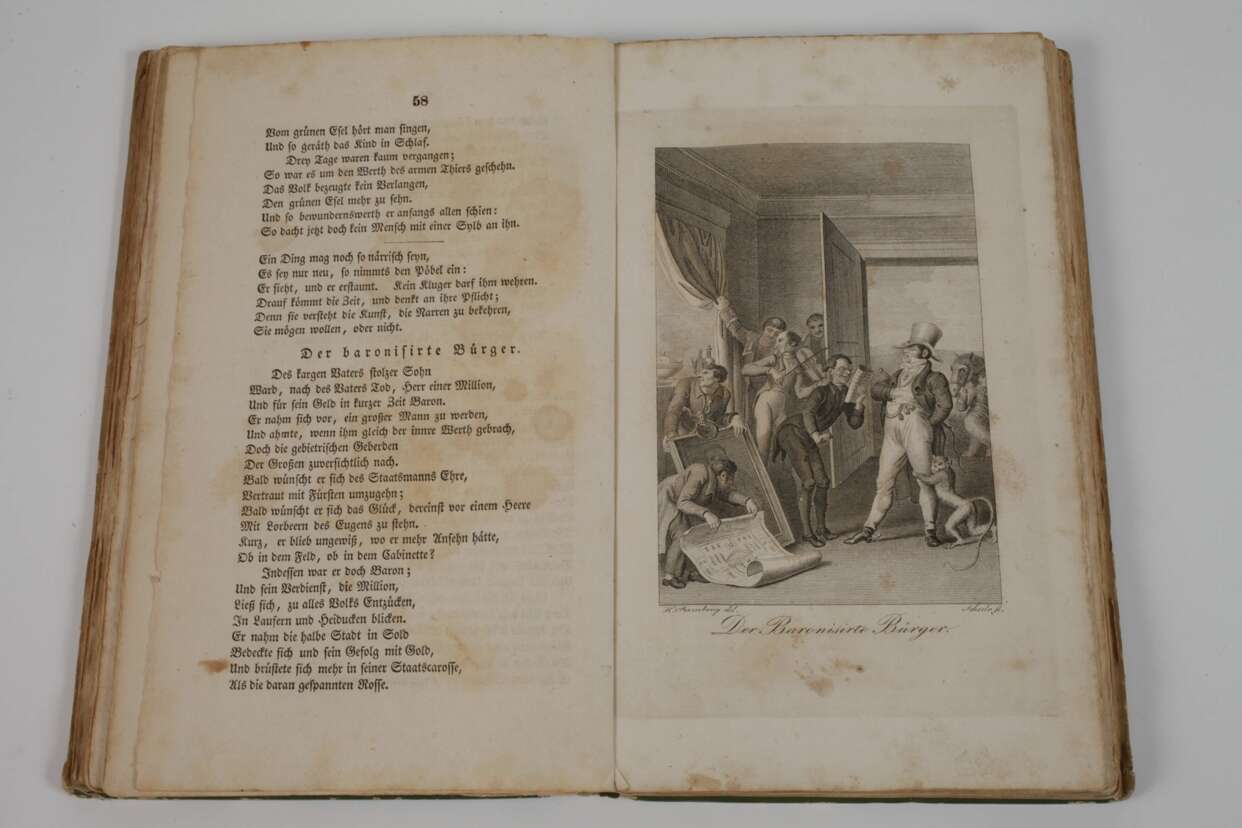 58
Vom grünen Esel hört man singen,
Und so geräth das Kind in Schlaf.
Drey Tage waren kaum vergangen;
So war es um den Werth des armen Thiers geschehn.
Das Volk bezeugte kein Verlangen,
Den grünen Esel mehr zu sehn.
Und so bewundernswerth er anfangs allen schien:
So dacht jetzt doch kein Mensch mit einer Sylb an ihn.
Ein Ding mag noch so närrisch seyn,
Es sey nur neu, so nimmts den Pöbel ein:
Er sieht, und er erstaunt. Kein Kluger darf ihm wehren.
Drauf kömmt die Zeit, und denkt an ihre Pflicht;
Denn sie versteht die Kunst, die Narren zu bekehren,
Sie mögen wollen, oder nicht.
Der baronisirte Bürger.
Des kargen Vaters stolzer Sohn
Ward, nach des Vaters Tod, Herr einer Million,
Und für sein Geld in kurzer Zeit Baron.
Er nahm sich vor, ein großer Mann zu werden,
Und ahmte, wenn ihm gleich der innre Werth gebrach,
Doch die gebietrischen Geberden
Der Großen zuversichtlich nach.
Bald wünscht er sich des Staatsmanns Ehre,
Vertraut mit Fürsten umzugehn;
Bald wünscht er sich das Glück, dereinst vor einem Heere
Mit Lorbeern des Eugens zu stehn.
Kurz, er blieb ungewiß, wo er mehr Ansehn hätte,
Ob in dem Feld, ob in dem Cabinette?
Indessen war er doch Baron;
Und sein Verdienst, die Million,
Ließ sich, zu alles Volks Entzücken,
In Laufern und Heiducken blicken.
Er nahm die halbe Stadt in Sold
Bedeckte sich und sein Gefolg mit Gold,
Und brüstete sich mehr in seiner Staatscarosse,
Als die daran gespannten Rosse.
Ramberg del.
Der Baronisirte Bürger.